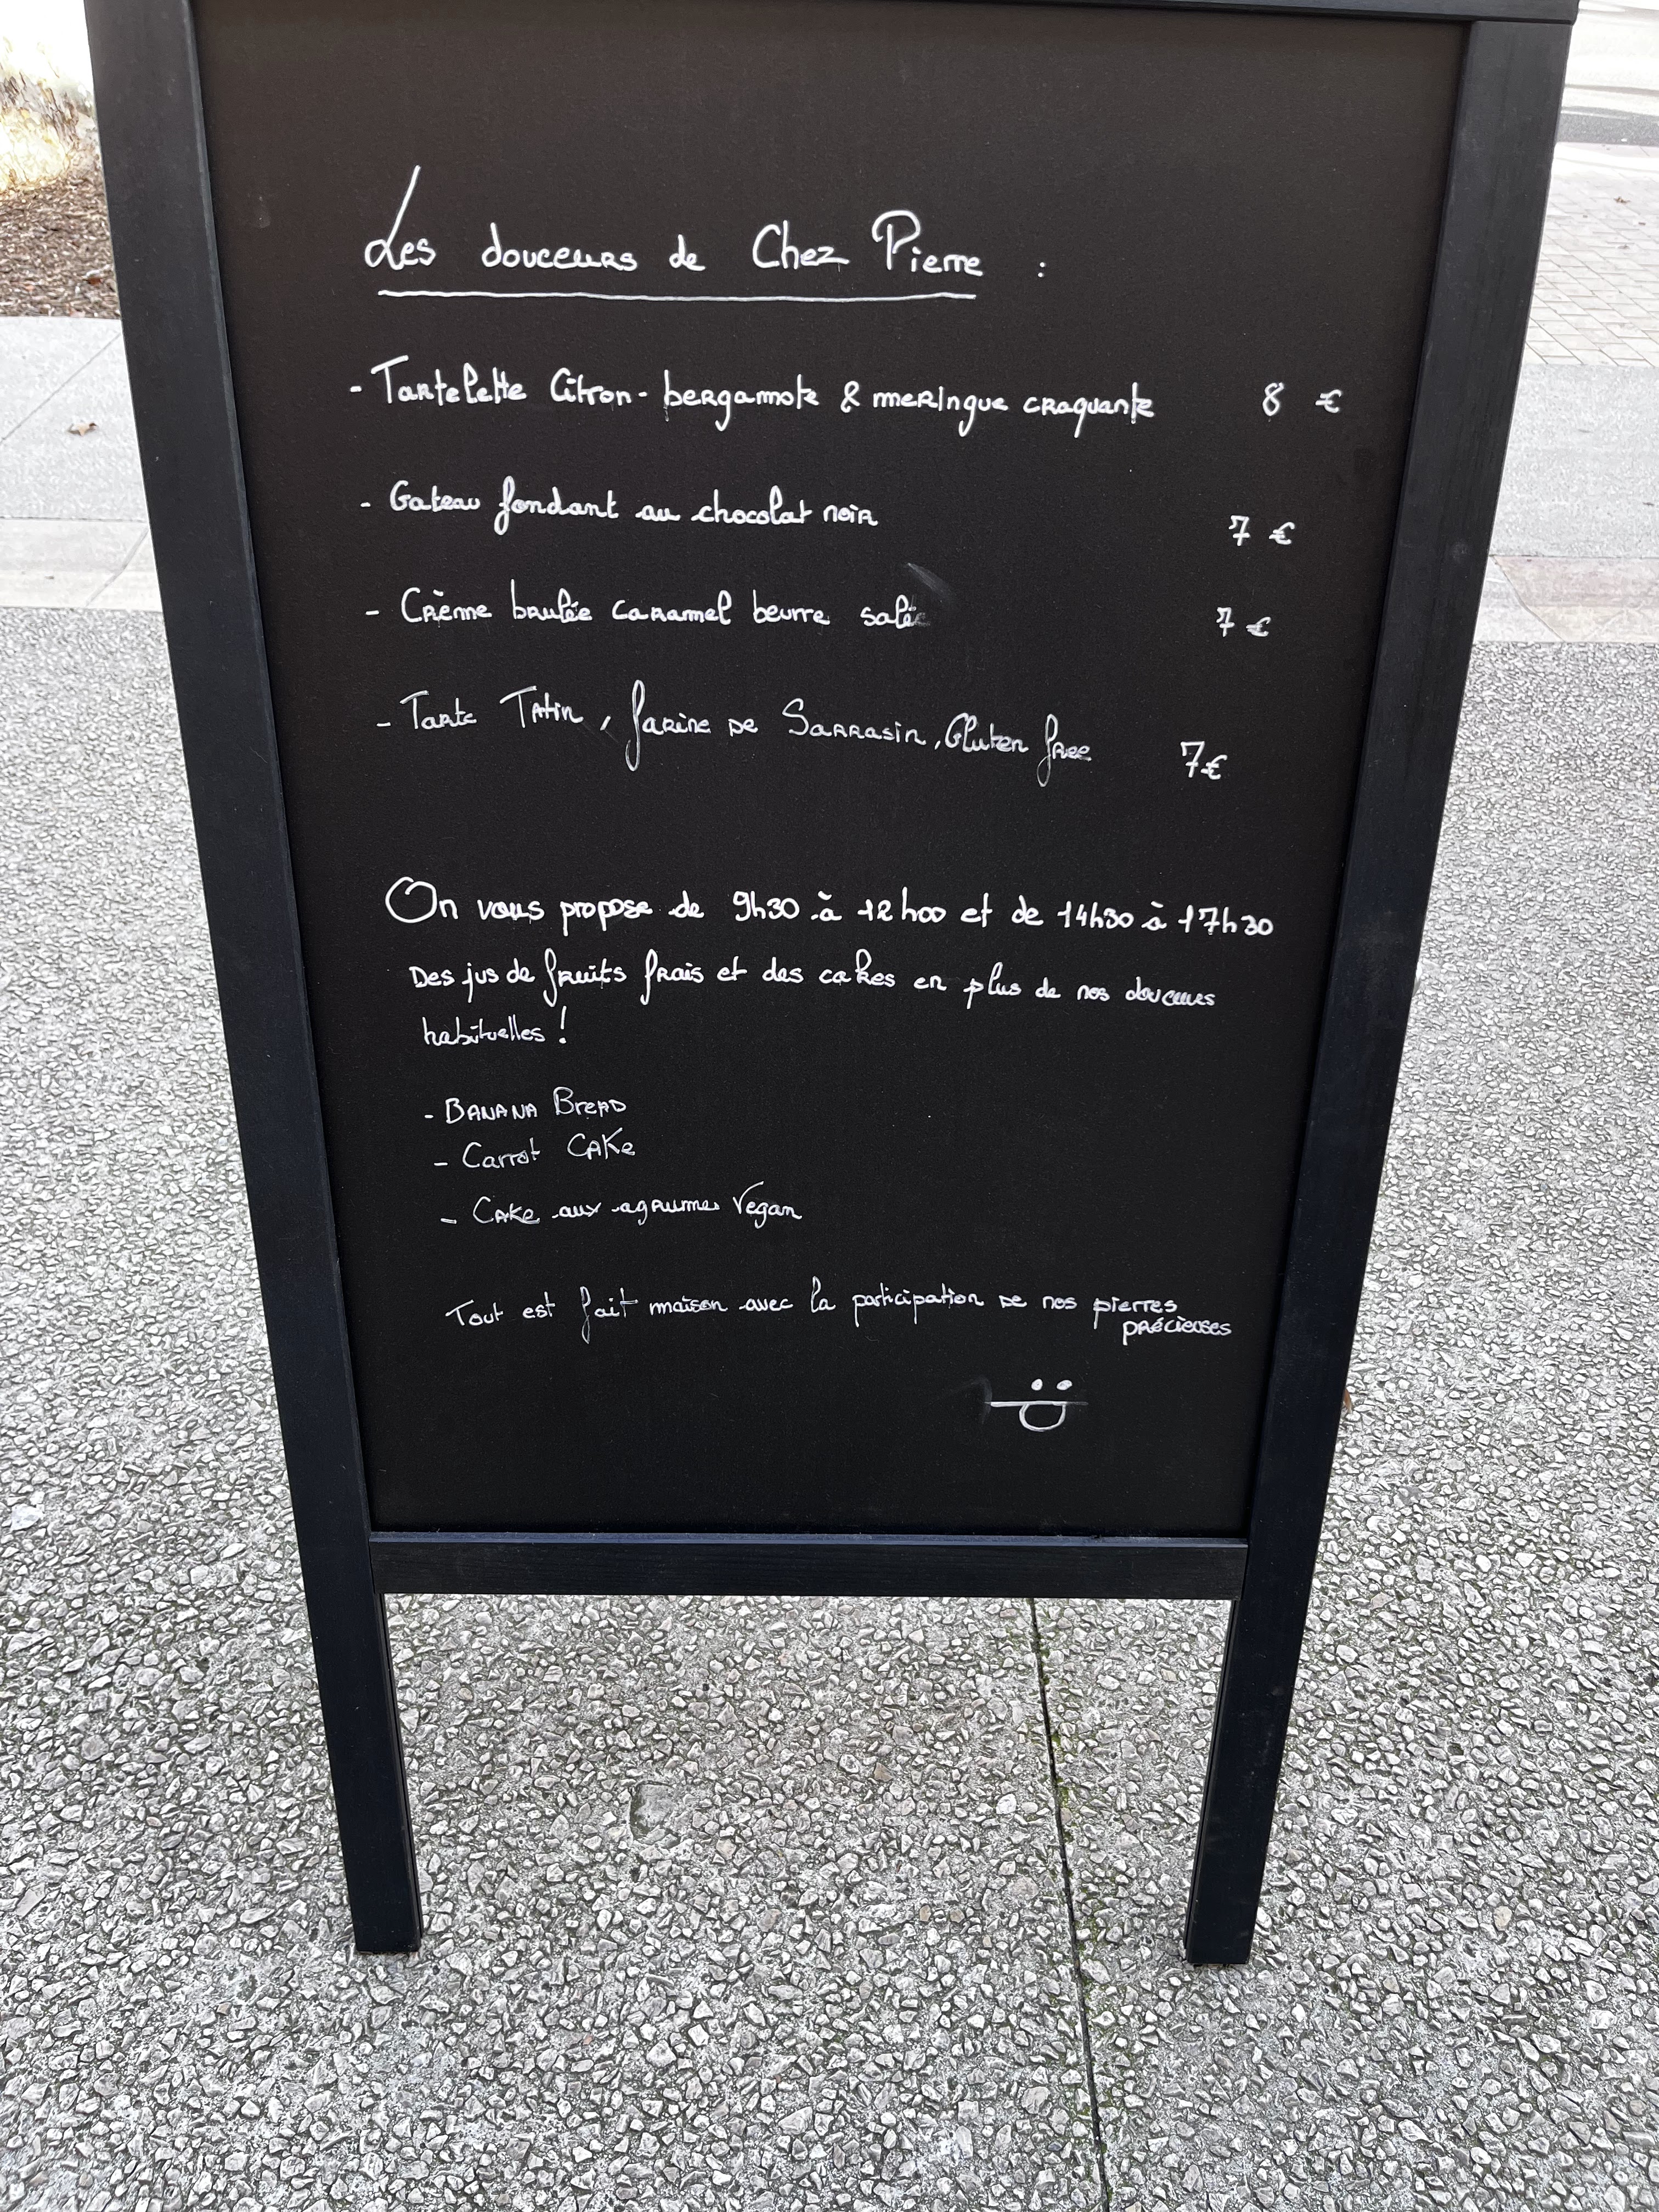 Les douceurs de Chez Pierre :
- Tartelette Citron-bergamote & meringue craquante 8 €
- Gateau fondant au chocolat noir 7 €
- Crème brulée caramel beurre salée 7 €
- Tarte Tatin, farine de Sarrasin, Gluten free 7€
On vous propose de 9h30 à 12h00 et de 14h30 à 17h30
Des jus de fruits frais et des cakes en plus de nos douceurs
habituelles !
- BANANA BreAD
- Carrot CAKe
- CAKe aux agrumes Vegan
Tout est fait maison avec la participation de nos pierres
précieuses